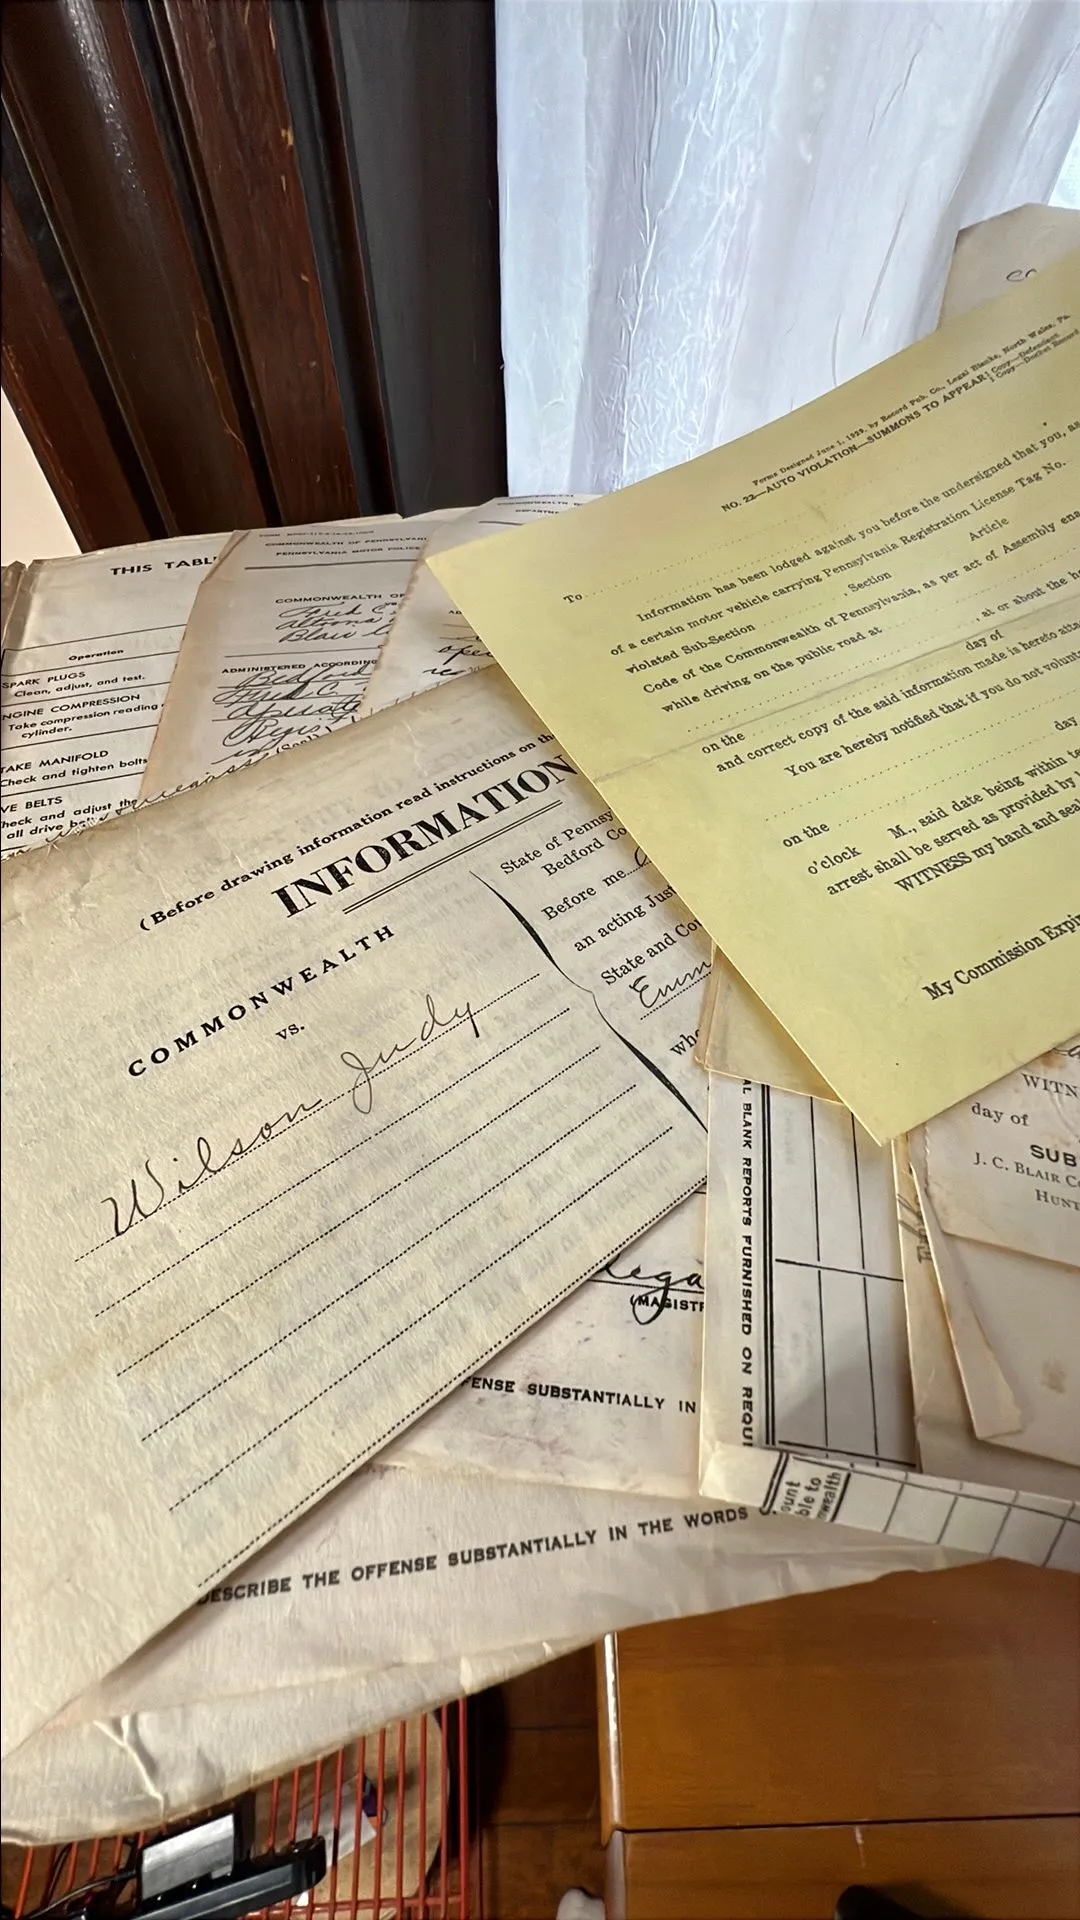 THIS TABL
Operation
SPARK PLUGS
Clean, adjust, and test.
NGINE COMPRESSION
Take compression reading
cylinder.
TAKE MANIFOLD
Check and tighten bolts
VE BELTS
heck and adjust the
all drive
COMMONWEALTH OF PENNSYLVANI
PENNSYLVANIA MOTOR POLICE
COMMONWEALTH OF
Fred C.
Altoona
Blair
ADMINISTERED ACCORDING
Bedford
Fred C.
operate
Regis
(Seal)
DEPARTM
(Before drawing information read instructions on the
INFORMATION
COMMONWEALTH
vs.
Wilson Judy
State of Pennsy
Bedford Co
Before me
an acting Just
State and Cou
Emm
who
Forms Designed June 1, 1929, by Record Pub. Co., Legal Blanks, North Wales, Pa
NO. 22—AUTO VIOLATION—SUMMONS TO APPEAR
Copy—Defendant
1 Copy—Docket Record
To
Information has been lodged against you before the undersigned that you, as
of a certain motor vehicle carrying Pennsylvania Registration License Tag No.
violated Sub-Section , Section Article
Code of the Commonwealth of Pennsylvania, as per act of Assembly ena
while driving on the public road at , at or about the h
on the day of
and correct copy of the said information made is hereto atta
You are hereby notified that if you do not volunta
on the day
o'clock M., said date being within te
arrest shall be served as provided by l
WITNESS my hand and sea
My Commission Expir
AL BLANK REPORTS FURNISHED ON REQU
WITN
day of
SUB
J. C. BLAIR Co
HUNT
(MAGISTR
FENSE SUBSTANTIALLY IN
ount
ble to
wealth
DESCRIBE THE OFFENSE SUBSTANTIALLY IN THE WORDS